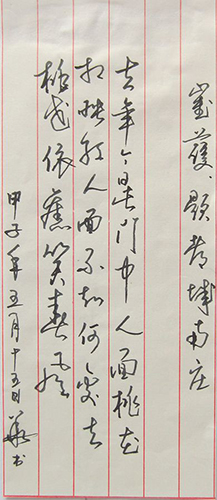 崔護、題都城南庄
去年今日此门中人面桃花
相映红人面不知何處去
桃花依舊笑春风
甲子年五月十五日華书